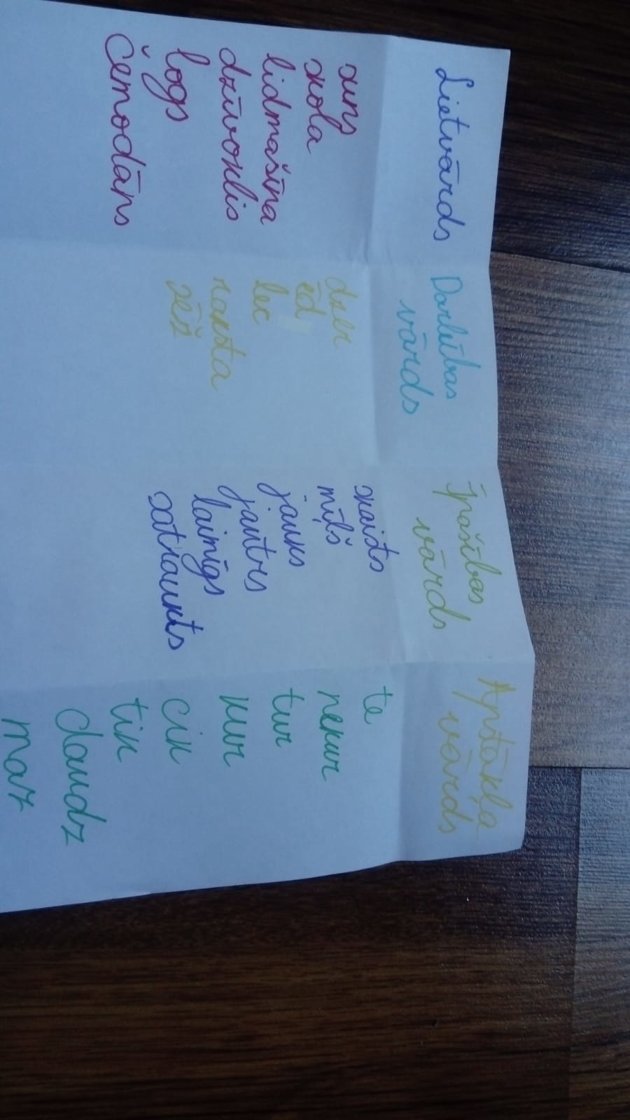 Lietvārds
suns
skola
lidmašīna
dzīvoklis
logs
čemodāns
Darbības
vārds
dzer
ēd
lec
raksta
sēž
Īpašības
vārds
skaists
mīļš
jauks
jautrs
laimīgs
satraukts
Apstākļa
vārds
te
nekur
tur
kur
cik
tik
daudz
maz